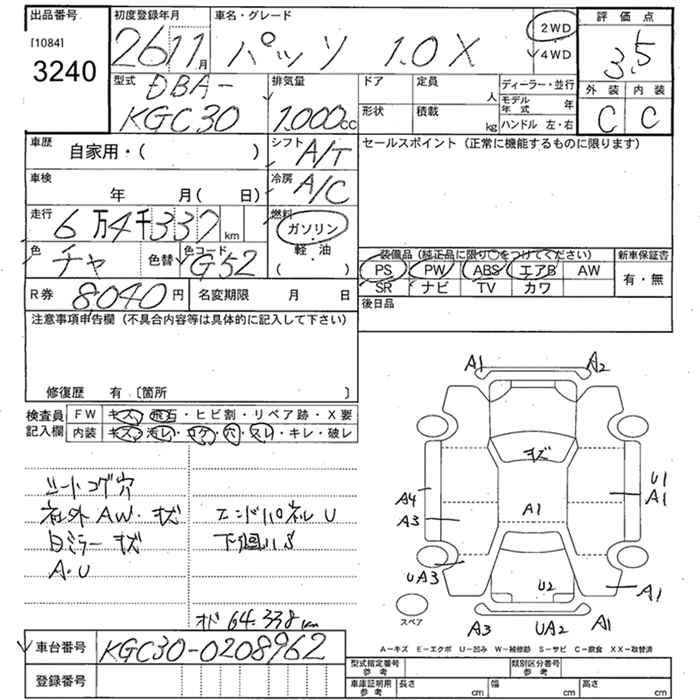 出品番号
[1084]
3240
初度登録年月
26 11月
車名・グレード
パッソ 1.0X
2WD
4WD
評価点
3.5
外装 内装
C C
型式
DBA-
KGC30
排気量
1.000cc
ドア
定員
人
形状
積載
kg
ディーラー・並行
モデル年式 年
ハンドル 左・右
車歴
自家用・( )
シフト
A/T
セールスポイント (正常に機能するものに限ります)
車検
年 月( 日)
冷房
A/C
走行
6万4千337km
燃料
ガソリン
軽・油
( )
色
チャ
色替
色コード
G52
装備品 (純正品に限り○をつけてください)
PS PW ABS エアB AW
SR ナビ TV カワ
新車保証書
有・無
R券 8040円
名変期限 月 日
後日品
注意事項申告欄 (不具合内容等は具体的に記入して下さい)
修復歴 有〔箇所 〕
検査員記入欄
FW キズ・飛石・ヒビ割・リペア跡・X要
内装 キズ・汚レ・コゲ・穴・スレ・キレ・破レ
シートコゲ穴
社外AW・キズ
日ミラーキズ
A・U
エンドパネルU
下廻りS
オド 64.338km
A1 A2
キズ
A1
U1
A1
A4
A3
UA3
U2
A1
A3 UA2 A1
スペア
A-キズ E-エクボ U-凹み W-補修跡 S-サビ C-腐食 XX-取替済
車台番号 KGC30-0208962
登録番号
型式指定番号 参考
類別区分番号 参考
車庫証明用 参考
長さ cm
幅 cm
高さ cm